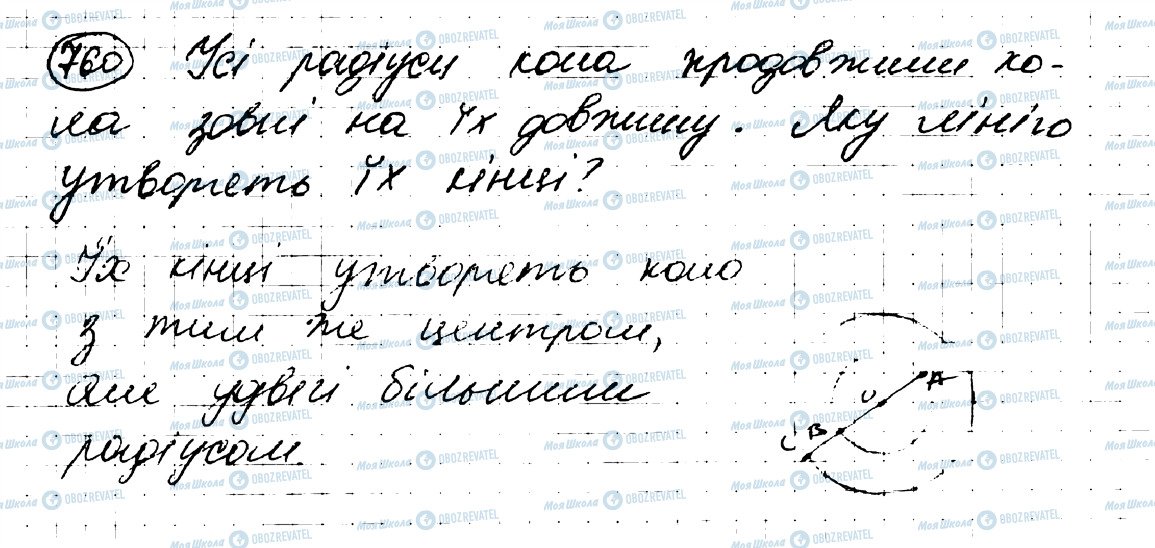 760 Усі радіуси кола продовжили ко-
ла зовні на їх довжину. Яку лінію
утворють їх кінці?
Їх кінці утворють коло
з тим же центром,
але удвічі більшим
радіусом.
A
O
B
C